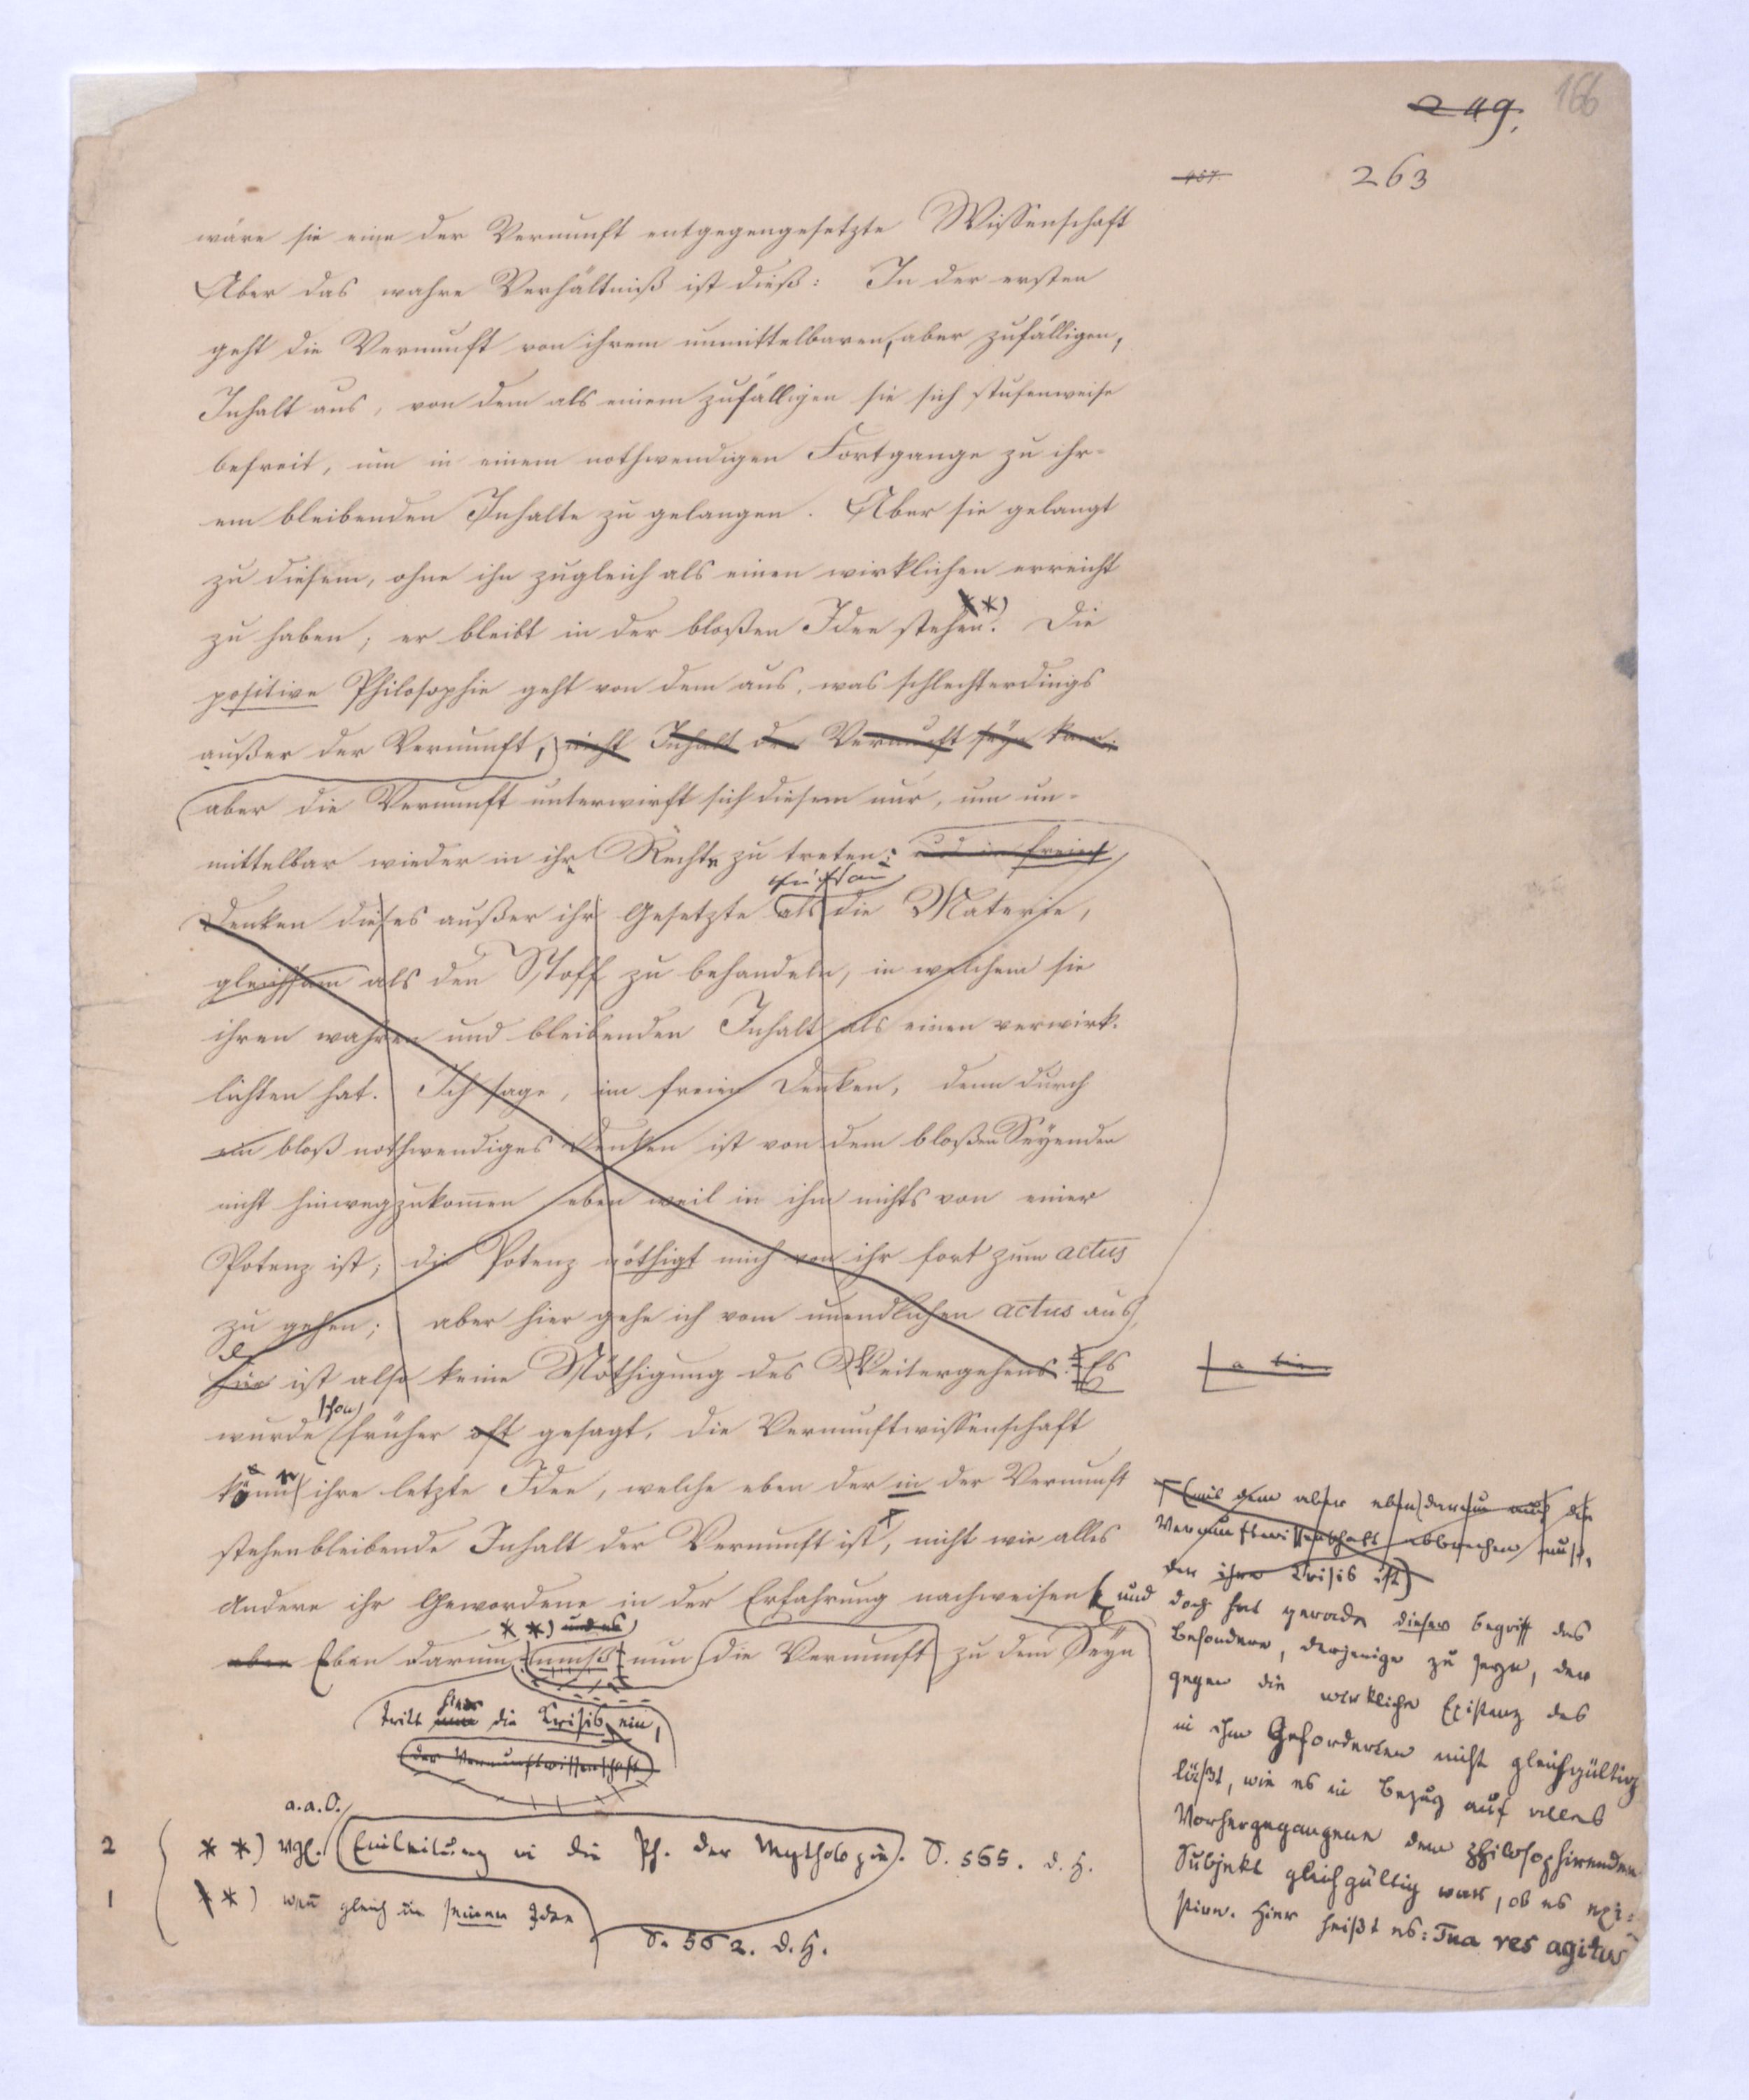 249.
166
457.
263
wäre sie eine der Vernunft entgegengesetzte Wissenschaft
Aber das wahre Verhältniß ist dieß: In der ersten
geht die Vernunft von ihrem unmittelbaren, aber zufälligen,
Inhalt aus, von dem als einem zufälligen sie sich stufenweise
befreit, um in einem nothwendigen Fortgange zu ihr-
em bleibenden Inhalte zu gelangen. Aber sie gelangt
zu diesem, ohne ihn zugleich als einen wirklichen erreicht
**)
zu haben; er bleibt in der bloßen Idee stehen. Die
positive Philosophie geht von dem aus, was schlechterdings
außer der Vernunft, nicht Inhalt der Vernunft seyn kann;
aber die Vernunft unterwirft sich diesem nur, um un-
mittelbar wieder in ihr Rechte zu treten: und im freien
gleichsam
Denken dieses außer ihr Gesetzte als die Materie,
gleichsam als den Stoff zu behandeln, in welchem sie
ihren wahren und bleibenden Inhalt als einen verwirk-
lichten hat. Ich sage, im freien Denken, denn durch
ein bloß nothwendiges Denken ist von dem bloßen Seyenden
nicht hinwegzukomen eben weil in ihm nichts von einer
Potenz ist; die Potenz nöthigt mich von ihr fort zum actus
zu gehen; aber hier gehe ich vom unendlichen actus aus,
hier ist also keine Nöthigung des Weitergehens. Es
schon
wurde früher oft gesagt, die Vernunftwissenschaft
könn ihre letzte Idee, welche eben der in der Vernunft
stehenbleibende Inhalt der Vernunft ist, nicht wie alles
Andere ihr Gewordene in der Erfahrung nachweisen
**) und es
aber Eben darum muß nun die Vernunft zu dem Seyn
hier
tritt nun die Crisis ein,
der Vernunftwissenschaft
(mit dem aber eben darum auch die
Vernunftwissenschaft abbrechen muß,
der ihre Crisis ist)
und doch hat gerade dieser Begriff das
Besondere, derjenige zu seyn, der
gegen die wirkliche Existenz des
in ihm Geforderten nicht gleichgültig
läßt, wie es in Bezug auf alles
Vorhergegangene dem philosophirenden
Subjekt gleichgültig war, ob es exi-
stire. Hier heißt es: Tua res agitur
a.a.O.
2 **) vgl. Einleitung in die Ph. der Mythologie. S. 565. d. H.
1 **) wen gleich in seiner Idee
S. 562. d. H.